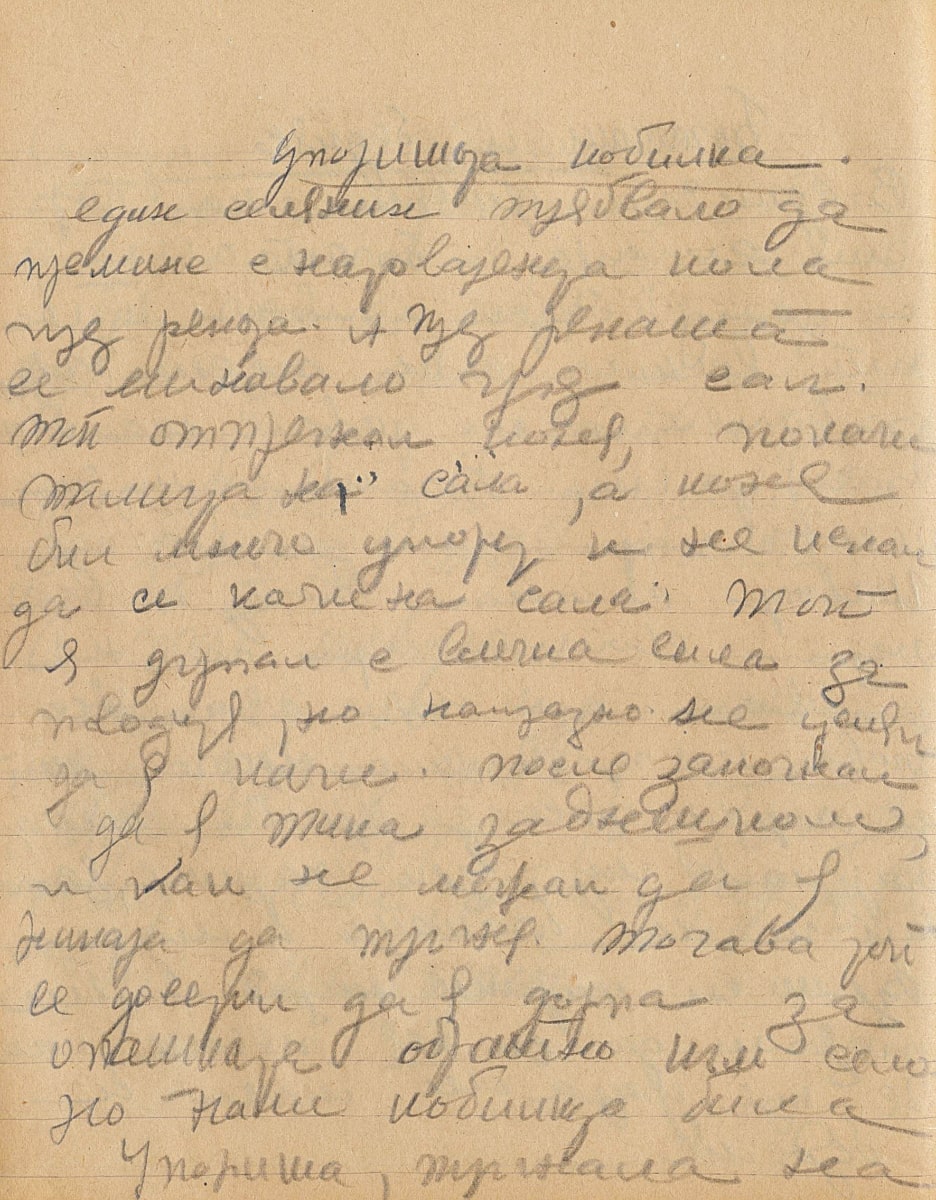 Упоритата кобилка.
един селянин трябвало да
премине с натоварената кола
през реката. А през реката
се минавало чрез сал.
Той отпрегнал коня, покачи
талигата на сала, а коня
бил много упорит и не искал
да се качи на сала. Той
я дърпал с всичка сила за
поводите, но напразно не успял
да я качи. После започнал
да я тика заднешком,
и пак не можал да я
накара да тръгне. Тогава той
се досетил да я дърпа за
опашката обратно към сало
но нали кобилката била
Упорита, тръгнала на